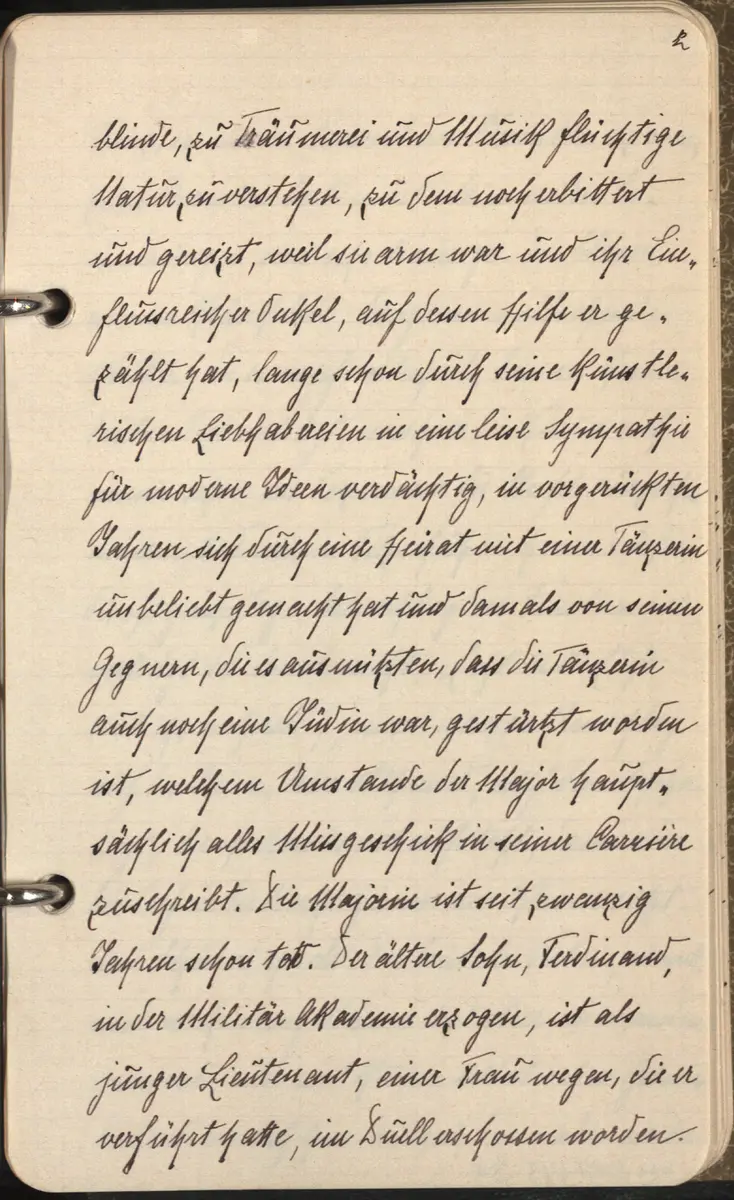 2
blinde, zu Träumerei und Musik flüchtige
Natur zu verstehen, zu dem noch erbittert
und gereizt, weil sie arm war und ihr Ein-
flussreicher Onkel, auf dessen Hilfe er ge-
zählt hat, lange schon durch seine Künstle-
rischen Liebhabereien in eine leise Sympathie
für moderne Ideen verdächtig, in vorgerückten
Jahren sich durch eine Heirat mit einer Tänzerin
unbeliebt gemacht hat und damals von seinen
Gegnern, die es ausnützten, dass die Tänzerin
auch noch eine Jüdin war, gestürtzt worden
ist, welchem Umstande der Major haupt-
sächlich alles Missgeschick in seiner Carrière
zuschreibt. Die Majorin ist seit zwanzig
Jahren schon tot. Der ältere Sohn, Ferdinand,
in der Militär Akademie erzogen, ist als
junger Lieutenant, einer Frau wegen, die er
verführt hatte, im Duell erschossen worden.